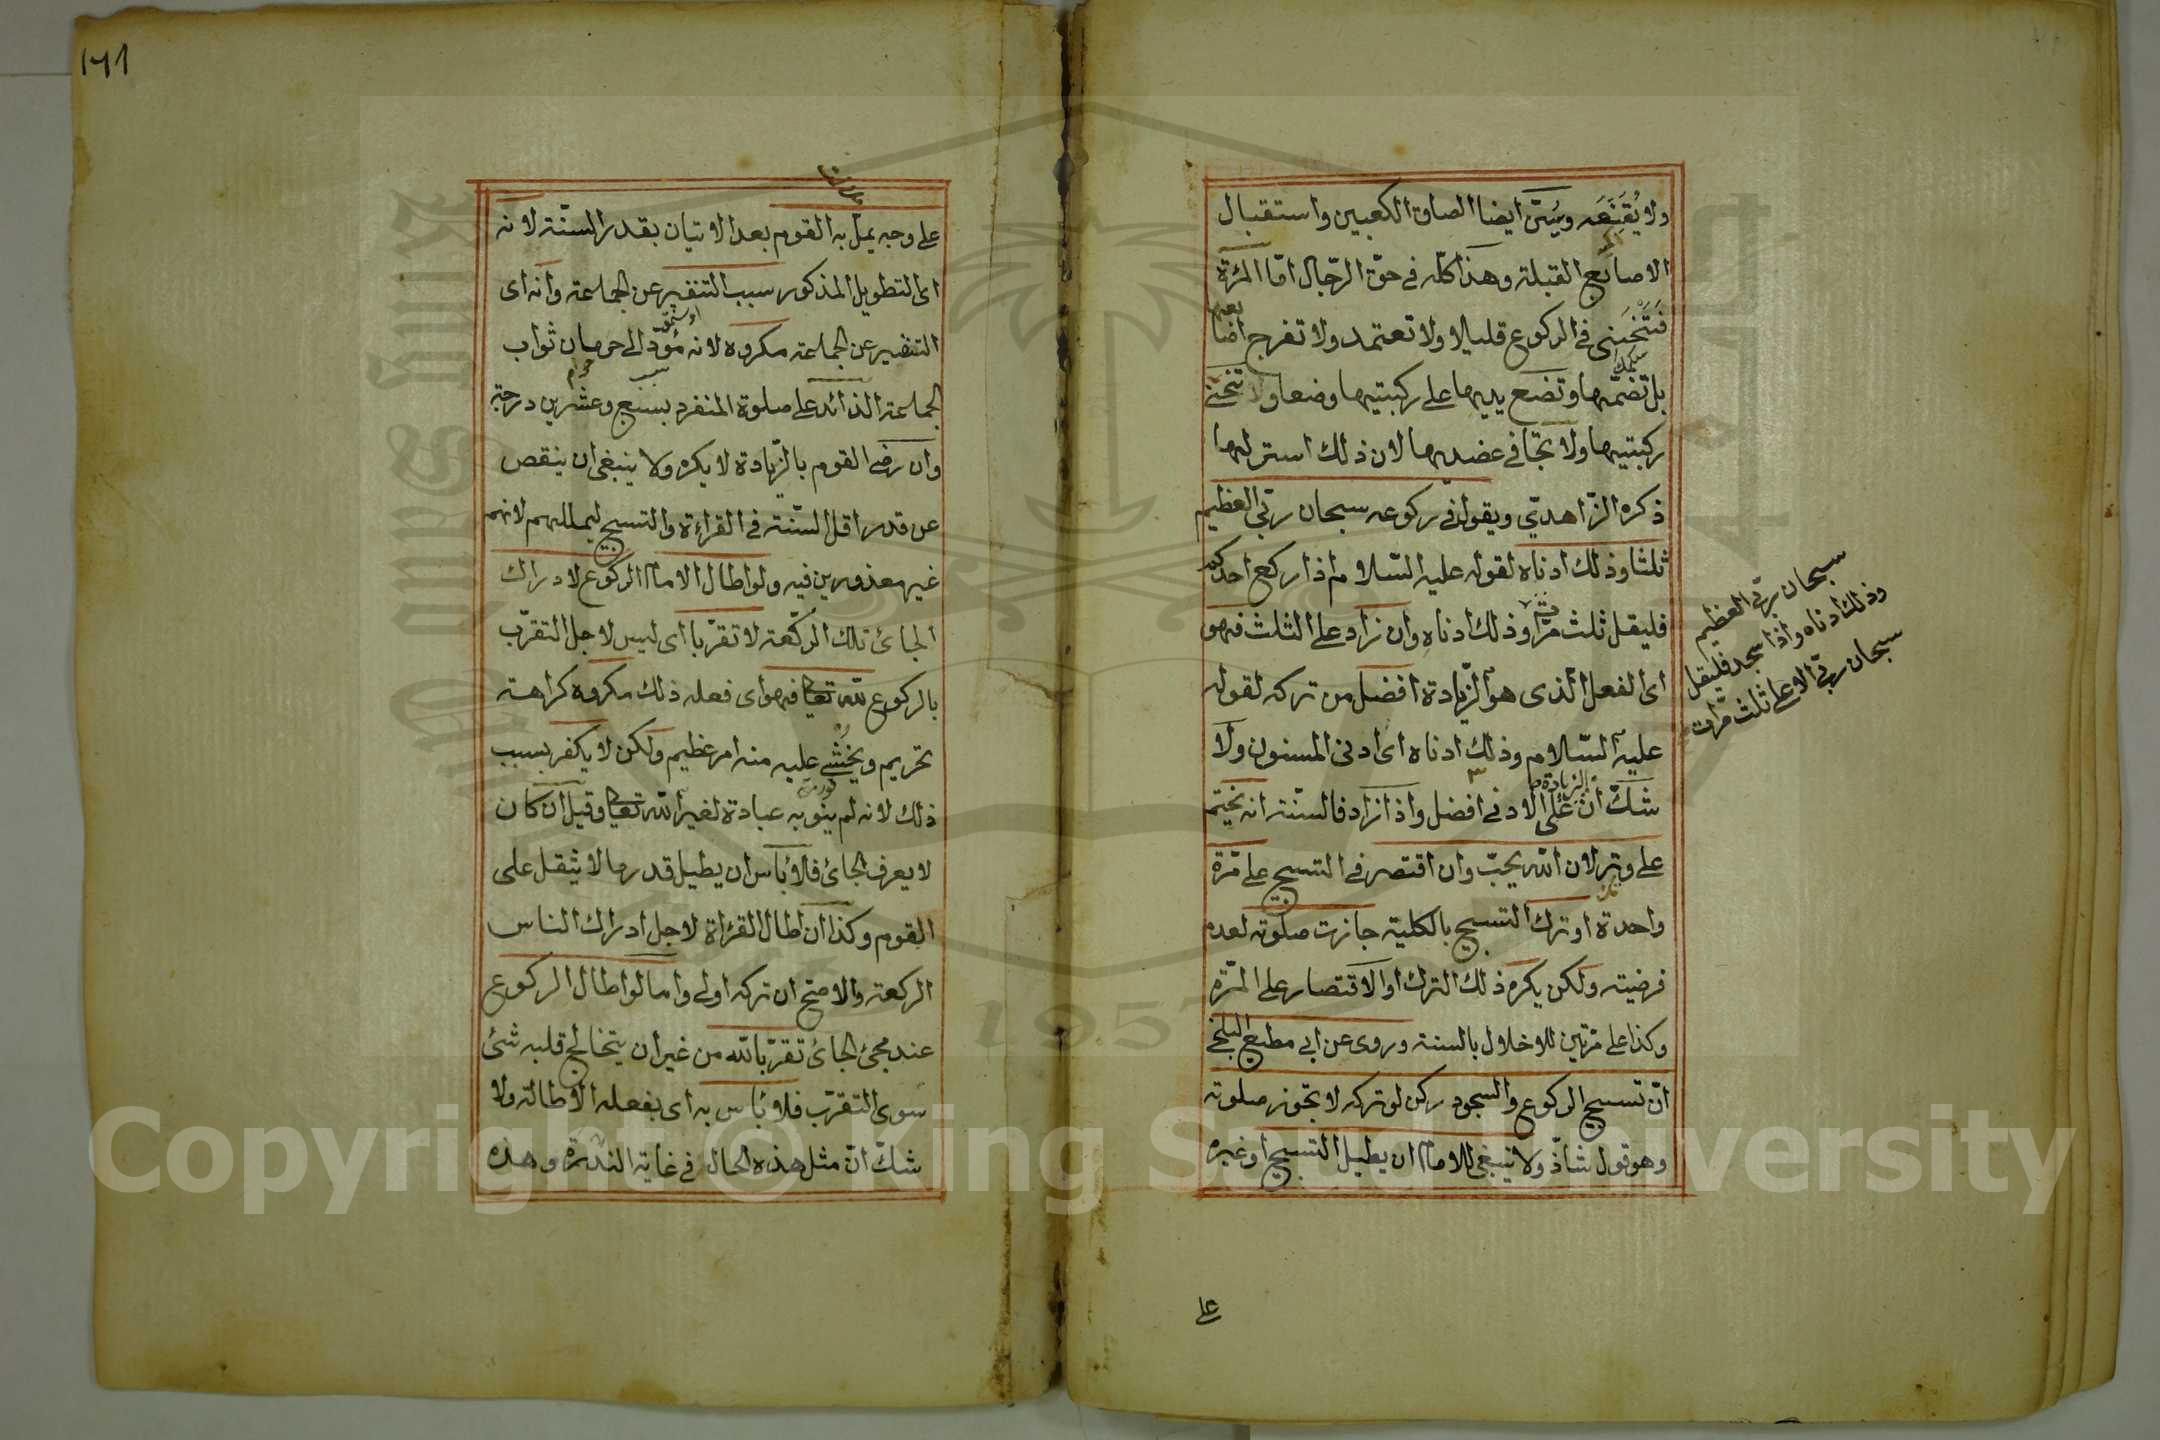 ولا يُقَنِّعَه ويُسَنّ ايضا الصاق الكعبين واستقبال
الاصابع القبلة وهذا كلّه في حقّ الرّجال امّا المرءة
فَتَنْحَنِي في الركوع قليلا ولا تعتمد ولا تفرج اصا بعها
بل تضمّها وتضع يديها على ركبتيها وضعا ولا تنحني
ركبتيها ولا تجافي عضديها لان ذلك استر لها
ذكره الزّاهديّ ويقول في ركوعه سبحان ربّي العظيم
ثلثا وذلك ادناه لقوله عليه السّلام اذا ركع احدكم
فليقل ثلث مرّات وذلك ادناه وان زاد على الثلث فهو
اى الفعل الّذى هو الزّيادة افضل من تركه لقوله
عليه السّلام وذلك ادناه اى ادنى المسنون ولا
شكّ انّ الزيادة على الادنى افضل واذا زاد فالسّنّة انه يختم
على وتر لان اللّه يحبّ وان اقتصر في التسبيح على مرّة
واحدة او ترك التسبيح بالكلية جازت صلوته لعدم
فرضيته ولكن يكره ذلك الترك او الاقتصار على المرّة
وكذا على مرّتين للاخلال بالسنة وروى عن ابى مطيع البلخي
انّ تسبيح الركوع والسجود ركن لو تركه لا تجوز صلوته
وهو قول شاذّ ولا ينبغى للامام ان يطيل التسبيح او غيره
سبحان ربّي العظيم
وذلك ادناه واذا سجد فليقل
سبحان ربّي الاعلى ثلث مرّات
على
١٦١
على وجه يملّ به القوم بعد الاتيان بقدر السّنّة لانه
اى التطويل المذكور سبب التنفير عن الجماعة وانه اى
التنفير عن الجماعة مكروه لانه مُؤدّ الى حرمان ثواب
الجماعة الزائد على صلوة المنفرد بسبع وعشرين درجة
وان رضى القوم بالزّيادة لا يكره ولا ينبغى ان ينقص
عن قدر اقل السّنّة في القراءة والتسبيح لمللهم لانهم
غير معذورين فيه ولو اطال الامام الركوع لادراك
الجائ تلك الركعة لا تقرّبا اى ليس لاجل التقرّب
بالركوع للّه تعالى فهو اى فعله ذلك مكروه كراهة
تحريم ويُخشى عليه منه امر عظيم ولكن لا يكفر بسبب
ذلك لانه لم ينو به عبادة لغير اللّه تعالى وقيل ان كان
لا يعرف الجائ فلا بأس ان يطيل قدر ما لا يثقل على
القوم وكذا ان اطال القراة لاجل ادراك الناس
الركعة والاصح ان تركه اولى واما لو اطال الركوع
عند مجئ الجائ تقرّبا للّه من غير ان يتخالج قلبه شئ
سوى التقرّب فلا بأس به اى بفعله الاطالة ولا
شكّ انّ مثل هذه الحال في غاية الندرة وهذه
Copyright © King Saud University
1957